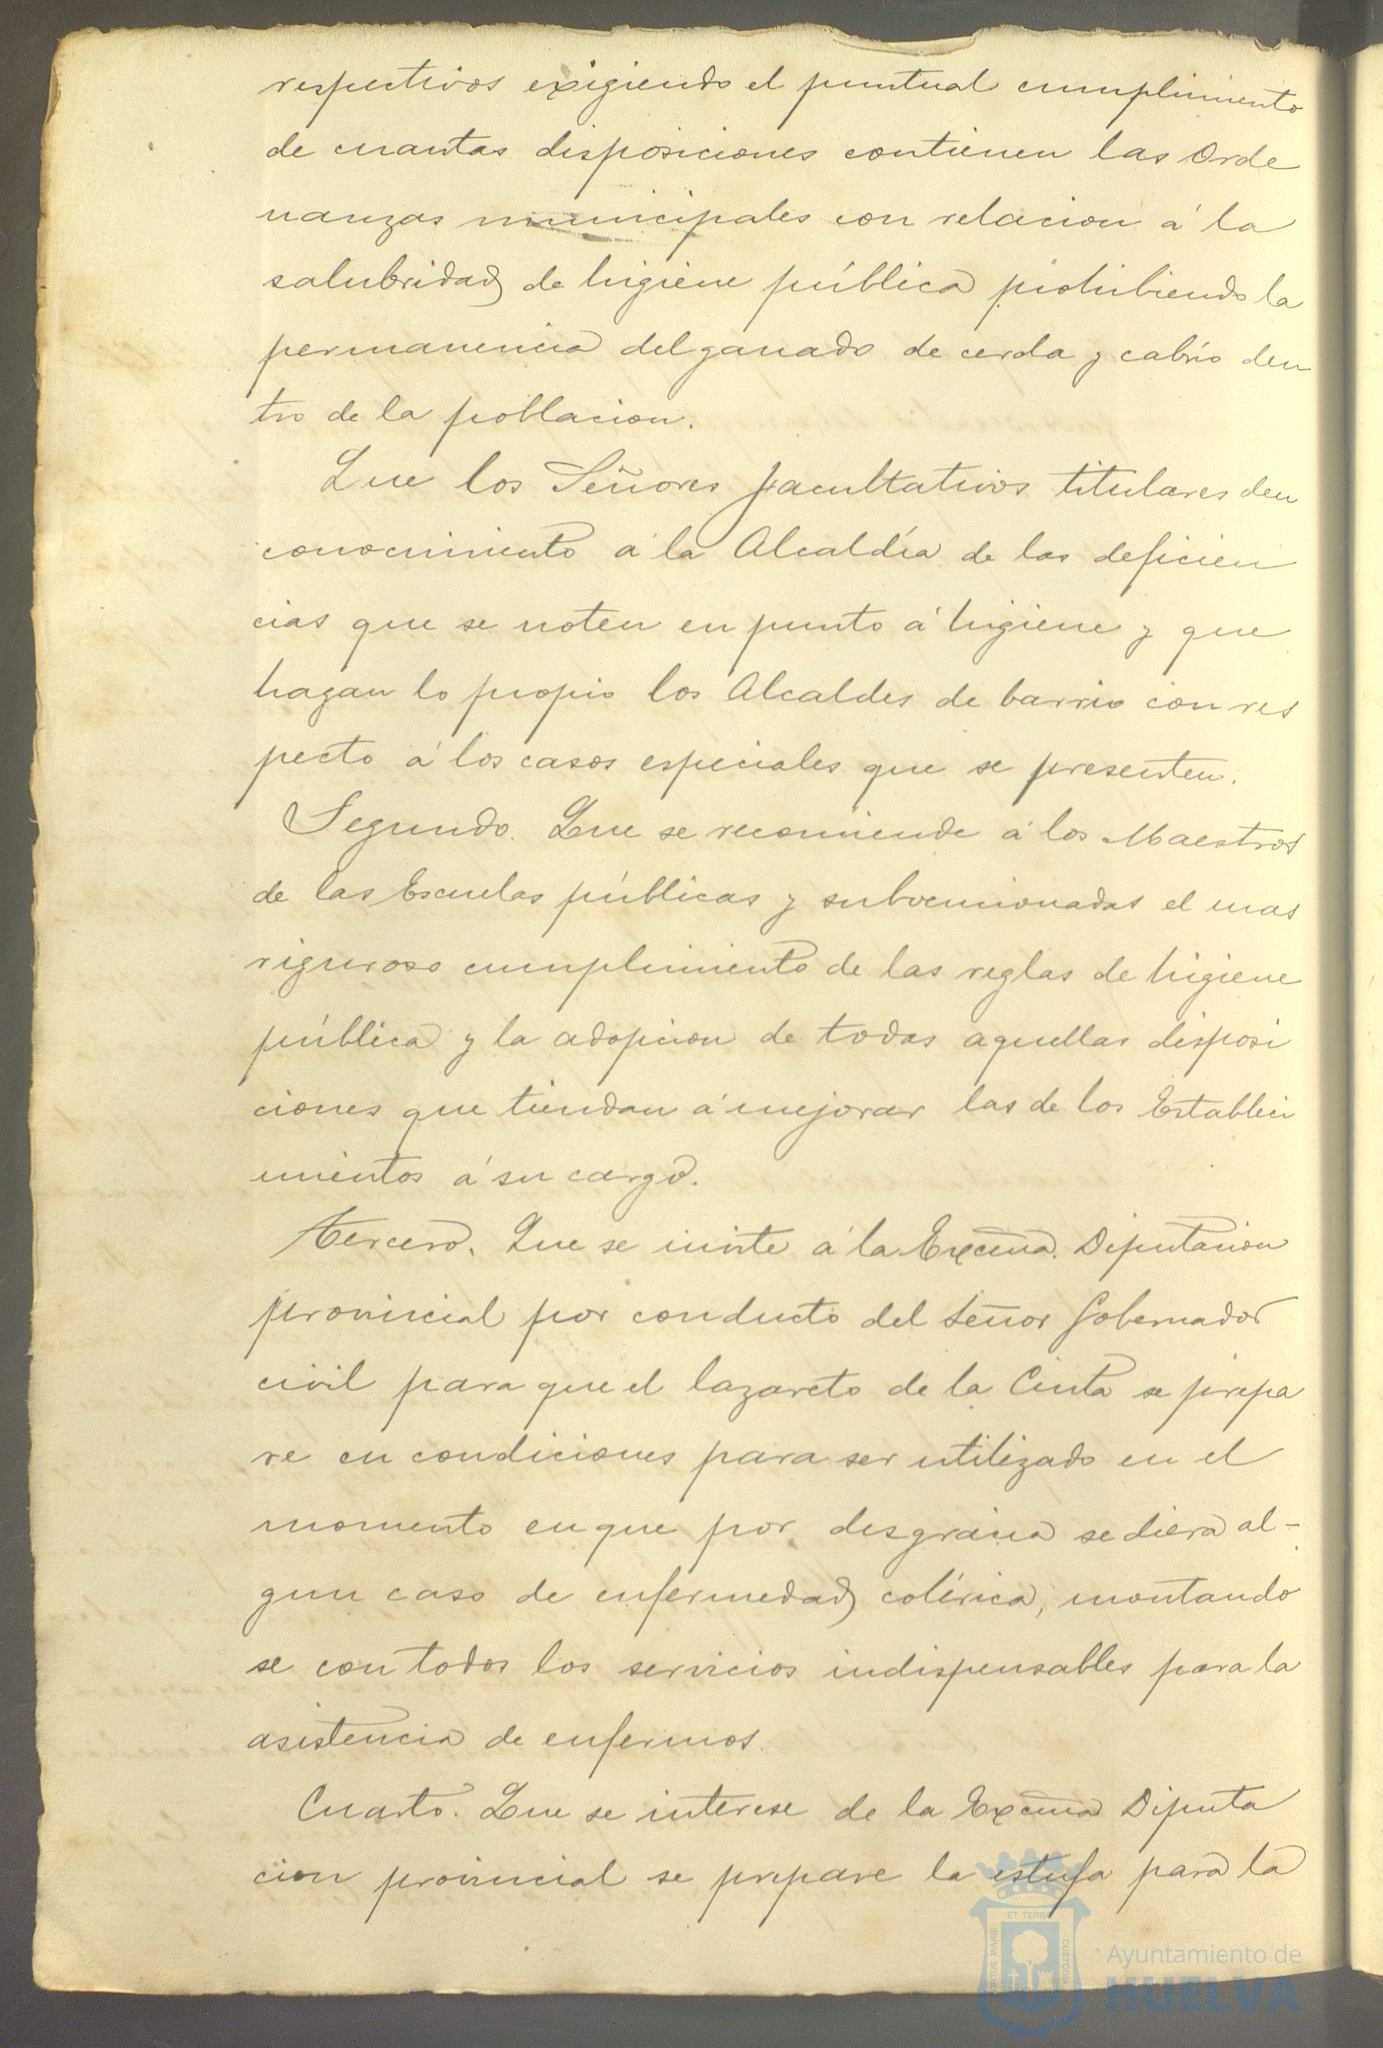 respectivos exigiendo el puntual cumplimiento
de cuantas disposiciones contienen las Orde
nanzas municipales con relacion á la
salubridad, de higiene pública prohibiendo la
permanencia del ganado de cerda y cabrio den
tro de la poblacion.
Que los Señores facultativos titulares den
conocimiento á la Alcaldía de las deficien
cias que se noten en punto á higiene y que
hagan lo propio los Alcaldes de barrio con res
pecto á los casos especiales que se presenten.
Segundo. Que se recomiende á los Maestros
de las Escuelas públicas y subvencionadas el mas
riguroso cumplimiento de las reglas de higiene
pública y la adopcion de todas aquellas disposi
ciones que tiendan á mejorar las de los Estableci
mientos á su cargo.
Tercero. Que se invite á la Excma. Diputacion
provincial por conducto del Señor Gobernador
civil para que el lazareto de la Cinta se prepa
re en condiciones para ser utilizado en el
momento en que por desgracia se diera al-
gun caso de enfermedad colérica, montando
se con todos los servicios indispensables para la
asistencia de enfermos.
Cuarto. Que se interese de la Excma Diputa
cion provincial se prepare la estufa para la
PORTUS MARIS ET TERRÆ CUSTODIA
Ayuntamiento de
HUELVA